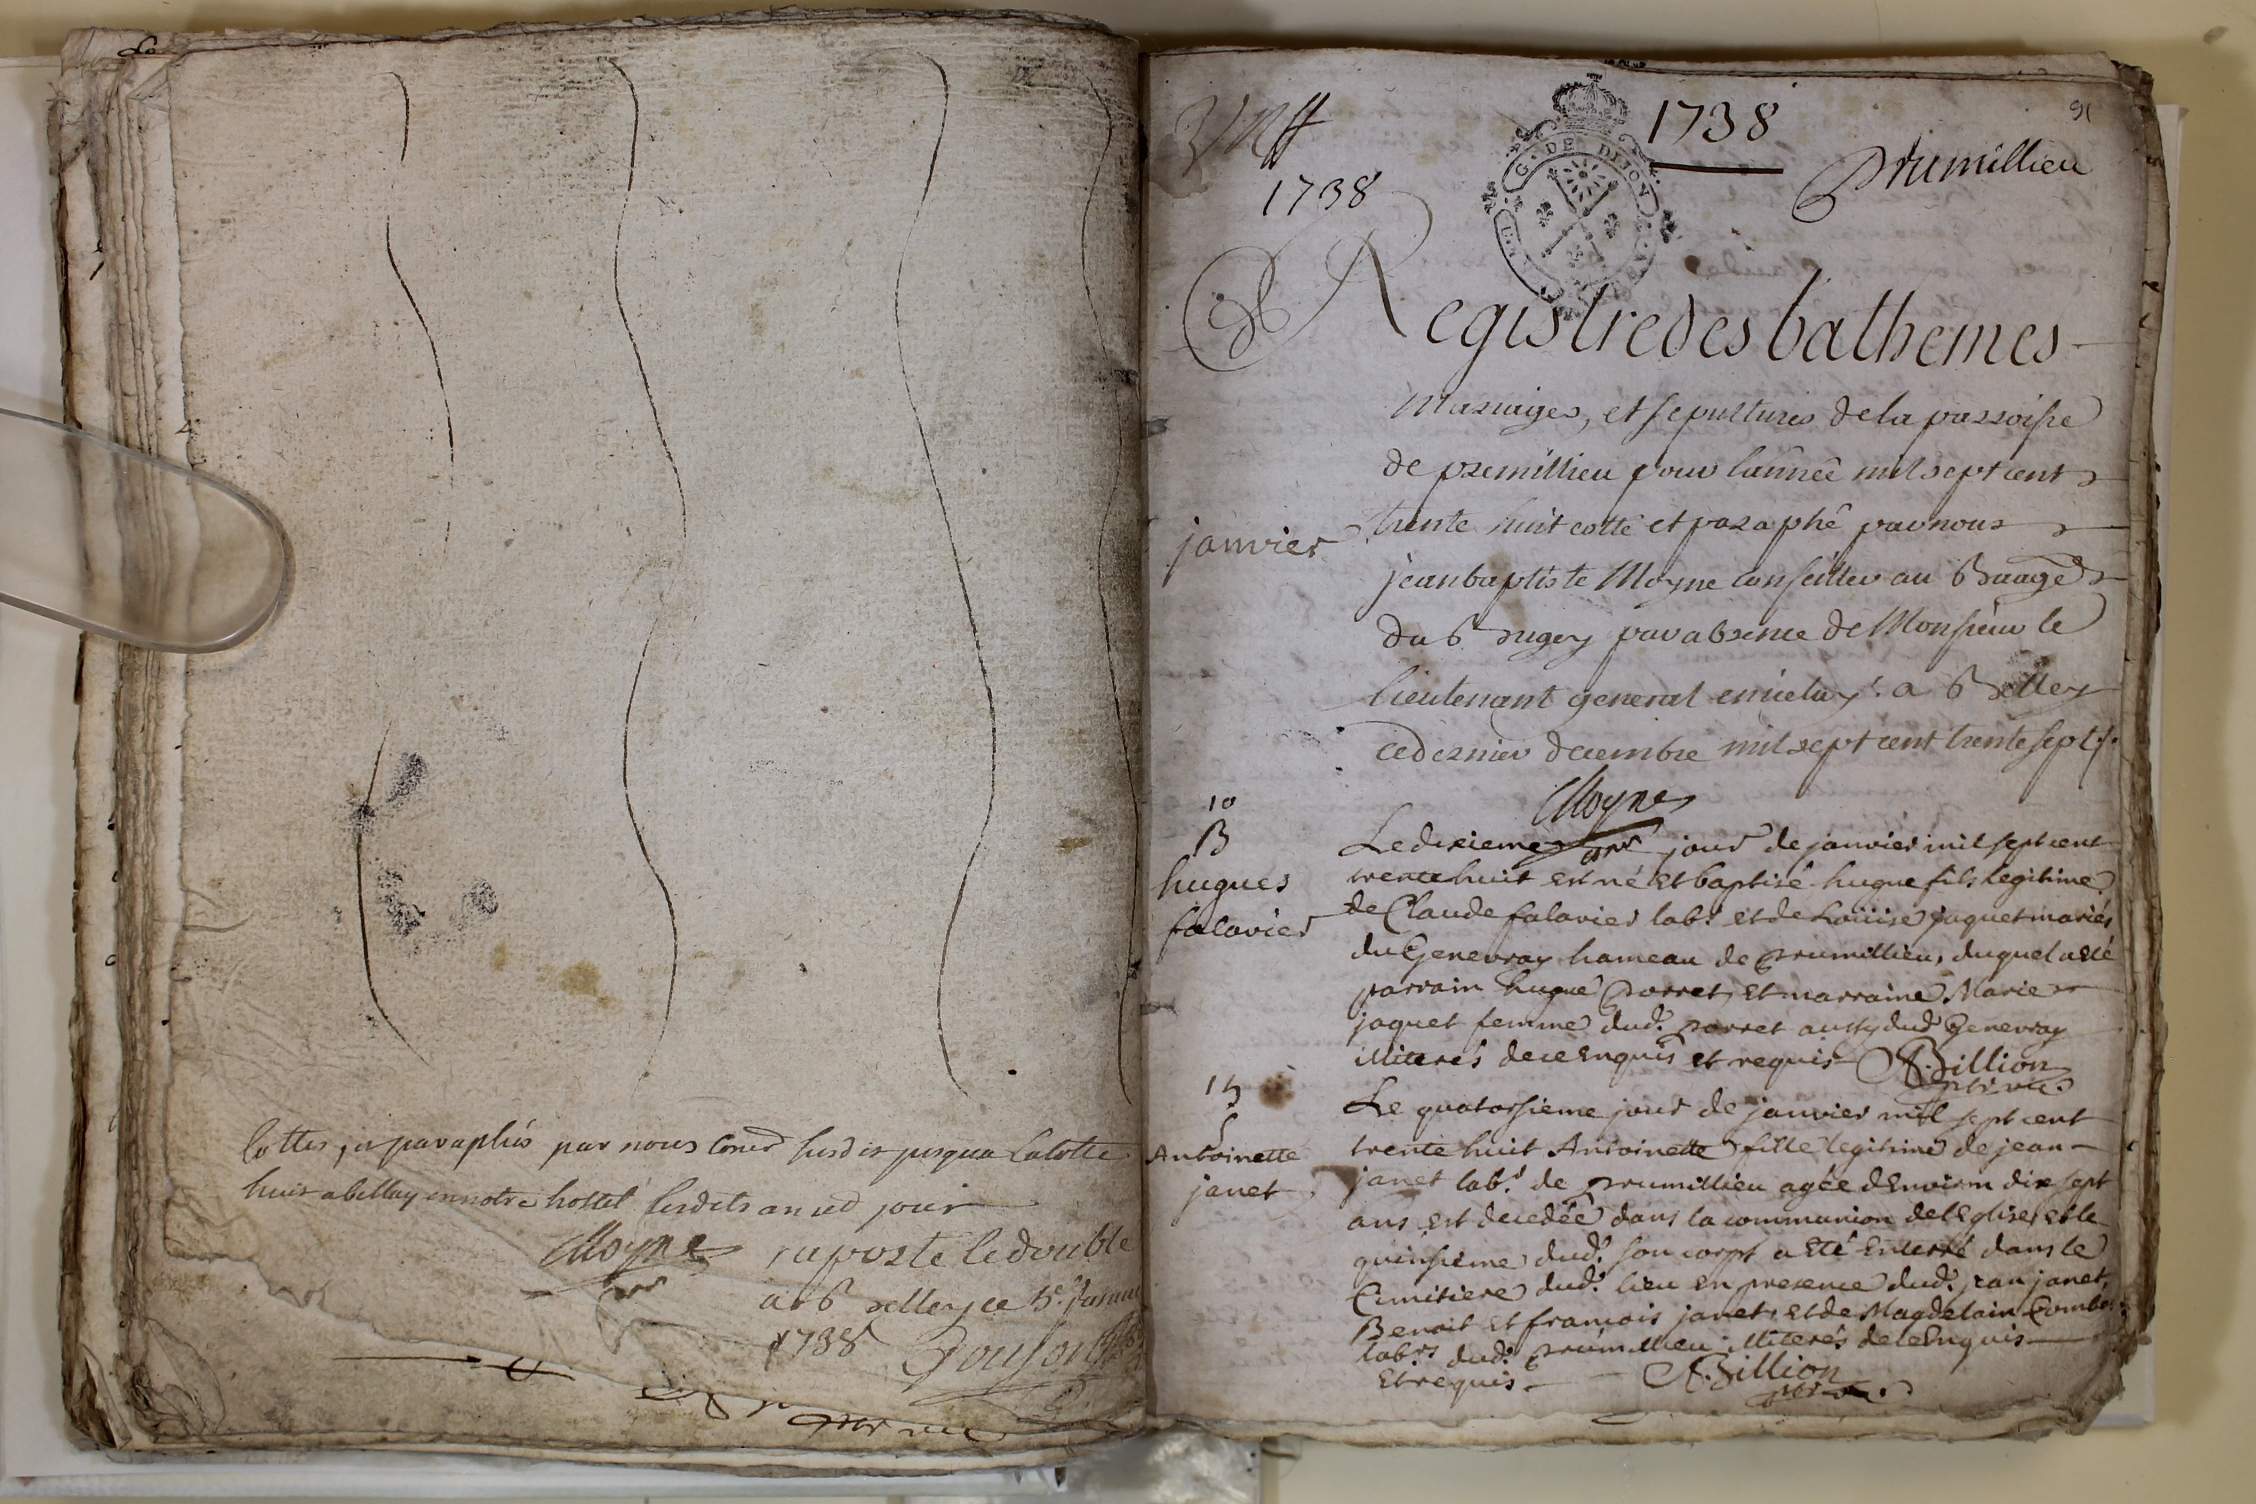 Cottes, et paraphés par nous Cons.er susdit jusqua la cotte
huit a bellay en notre hostel lesdits an et jour
Moyne raporté le double
a Belley ce 5e Janvier
1738
91
1738
Prumillieu
1738
G. DE DIJON
Registre des bathemes
Mariages, et sepultures de la parroisse
de premillieu pour lannée mil sept cent
trente huit cotté et paraphé par nous
janvier
jean baptiste Moyne Conseiller au Baage
du Bugey par absence de Monsieur le
lieutenant general a Belley
ce dernier decembre mil sept cent trente sept
Moyne
10
B
hugues
falavier
Le dixieme jour de janvier mil sept cent
trente huit est né et baptisé hugue fils legitime
de Claude falavier lab.r et de Louise jaquet mariés
du Genevray hameau de prumillieu, duquel a eté
parrain hugue Porret, et marraine Marie
jaquet femme dud.t porret aussy dud.t Genevray
illiterés de ce Enquis et requis B.Billion
15
S
Antoinette
janet
Le quatorsieme jour de janvier mil sept cent
trente huit Antoinette fille legitime de jean
janet lab.r de prumillieu agée d'Environ dix sept
ans est decedée dans la communion de l'Eglise, et le
quinsieme dud.t son corps a eté Enterré dans le
Cimitiere dud.t lieu en presence dud.t jean janet,
Benoit et francois janet, et de Magdelain Combe
lab.rs dud.t prumillieu illiterés de ce Enquis
Et requis. B.Billion